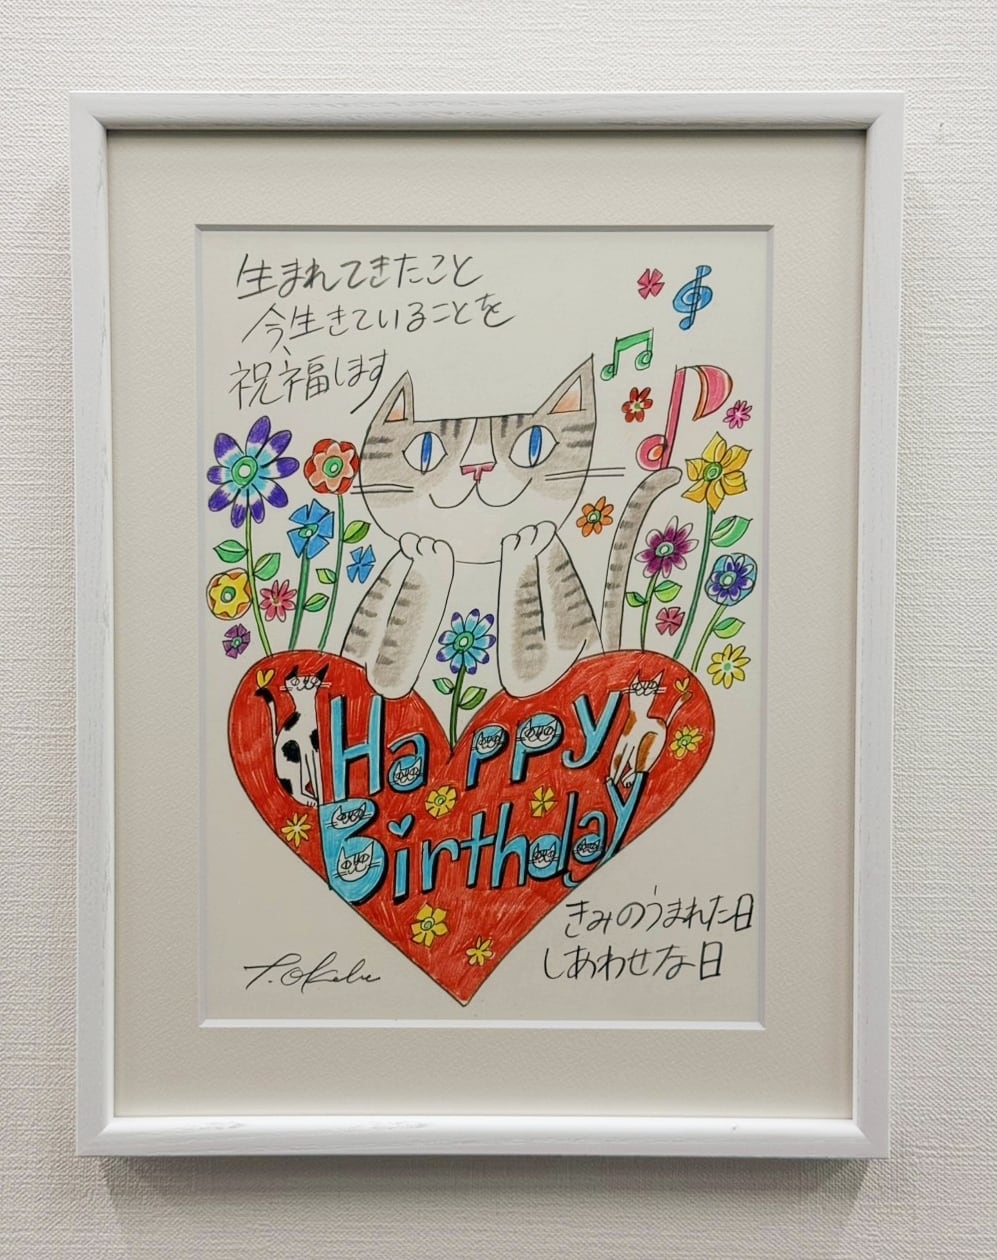 生まれてきたこと
今、生きていることを
祝福します
Happy
Birthday
きみのうまれた日
しあわせな日
T. Okabe